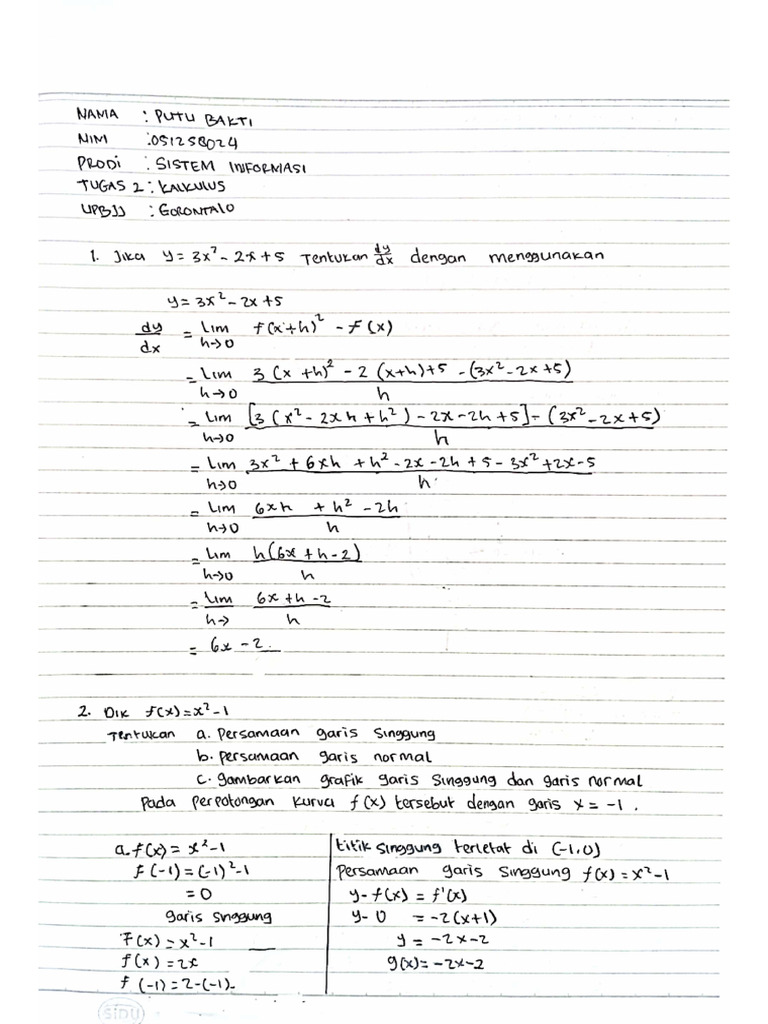 NAMA : PUTU BAKTI
NIM : 051258024
PRODI : SISTEM INFORMASI
TUGAS 2 : KALKULUS
UPBJJ : GORONTALO
1. Jika y = 3x² - 2x + 5 Tentukan dy/dx dengan menggunakan
y = 3x² - 2x + 5
dy/dx = Lim h→0 f(x+h)² - F(x)
= Lim h→0 3(x+h)² - 2(x+h)+5 - (3x² - 2x + 5) / h
= Lim h→0 [3(x² - 2xh + h²) - 2x - 2h + 5] - (3x² - 2x + 5) / h
= Lim h→0 3x² + 6xh + h² - 2x - 2h + 5 - 3x² + 2x - 5 / h
= Lim h→0 6xh + h² - 2h / h
= Lim h→0 h(6x + h - 2) / h
= Lim h→ 6x + h - 2 / h
= 6x - 2
2. Dik f(x) = x² - 1
Tentukan a. Persamaan garis singgung
b. Persamaan garis normal
c. gambarkan grafik garis singgung dan garis normal
Pada perpotongan kurva f(x) tersebut dengan garis x = -1.
a. f(x) = x² - 1
f(-1) = (-1)² - 1
= 0
garis snggung
F(x) = x² - 1
f(x) = 2x
f (-1) = 2-(-1)
titik singgung terletat di (-1,0)
Persamaan garis singgung f(x) = x² - 1
y - f(x) = f'(x)
y - 0 = -2(x+1)
y = -2x - 2
g(x) = -2x - 2
SIDU